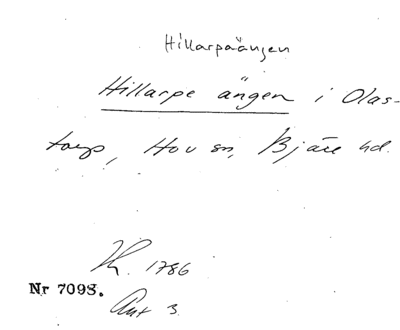 Hillarpaängen
Hillarpe ängen i Olas-
torp, Hov sn, Bjäre hd.
1786
Nr 7098.
Akt 3